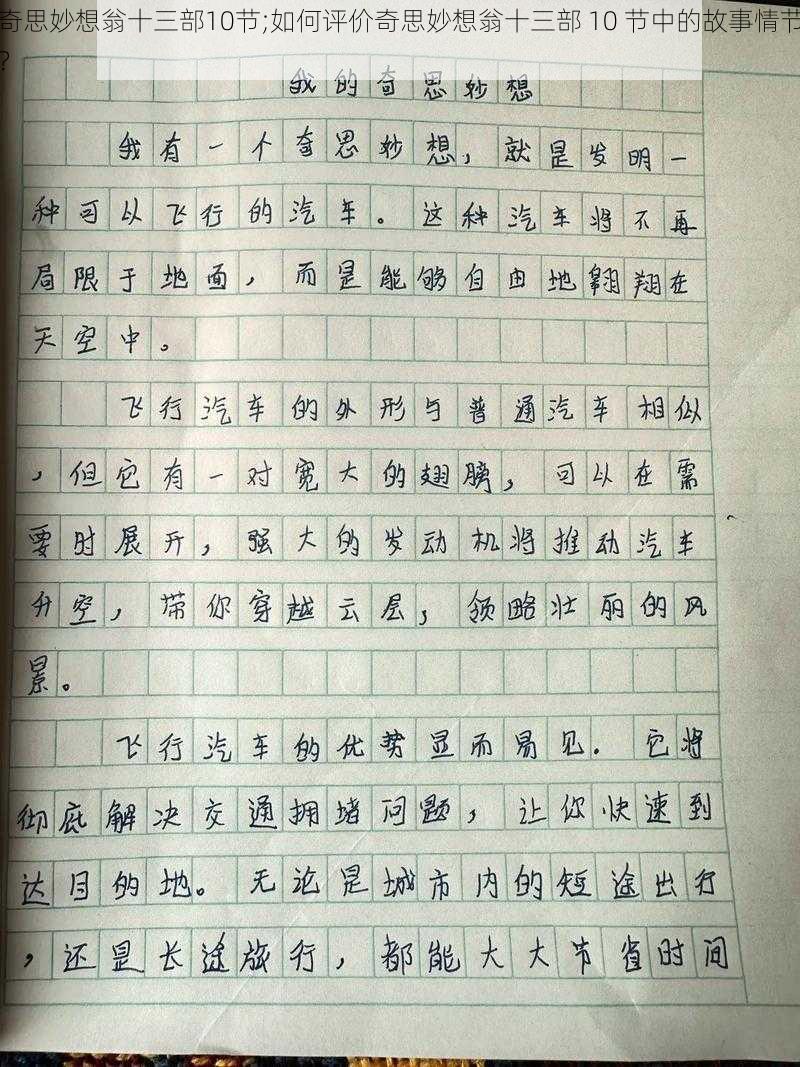 奇思妙想翁十三部10节;如何评价奇思妙想翁十三部 10 节中的故事情节
?
我的奇思妙想
我有一个奇思妙想，就是发明一
种可以飞行的汽车。这种汽车将不再
局限于地面，而是能够自由地翱翔在
天空中。
飞行汽车的外形与普通汽车相似
，但它有一对宽大的翅膀，可以在需
要时展开，强大的发动机将推动汽车
升空，带你穿越云层，领略壮丽的风
景。
飞行汽车的优势显而易见．它将
彻底解决交通拥堵问题，让你快速到
达目的地。无论是城市内的短途出行
，还是长途旅行，都能大大节省时间